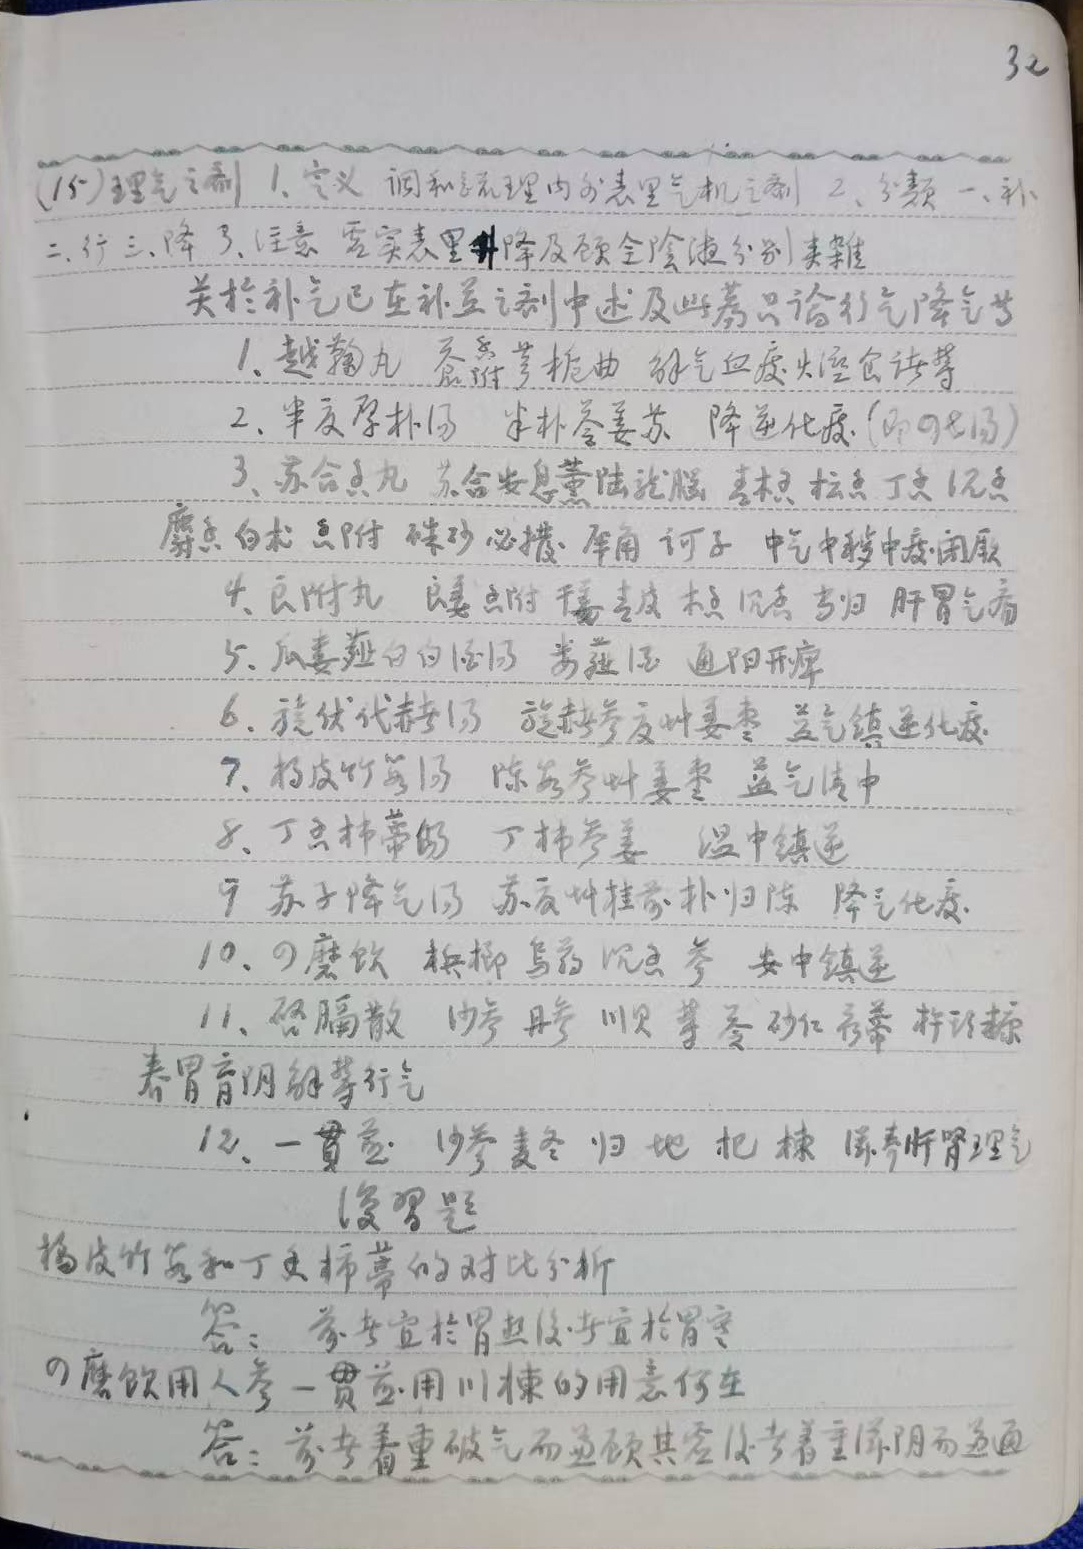 32
(15)理气之剂 1、定义 调和疏理内外表里气机之剂 2、分類 一、补
二、行 三、降 3、注意 虚实表里升降及顾全陰液分别类雜
关於补气已在补益之剂中述及此为只論行气降气药
1、越鞠丸 苍香附芎栀曲 解气血痰火湿食诸鬱
2、半夏厚朴汤 半朴苓姜苏 降逆化痰(即四七汤)
3、苏合香丸 苏合安息薰陆龙脑 青木香 檀香 丁香 沉香
麝香 白术 香附 硃砂 必撥 犀角 诃子 中气中秽中痰闭厥
4、良附丸 良姜香附 干姜青皮 木香 沉香 当归 肝胃气痛
5、瓜蒌薤白白酒汤 蒌薤酒 通阳开痹
6、旋伏代赭汤 旋赭参夏艸姜枣 益气镇逆化痰
7、橘皮竹茹汤 陈茹参艸姜枣 益气清中
8、丁香柿蒂汤 丁柿参姜 温中镇逆
9 苏子降气汤 苏夏艸桂前朴归陈 降气化痰
10、四磨饮 梹榔 烏药 沉香 参 安中镇逆
11、啓膈散 沙参 丹参 川贝 鬱 苓 砂仁 荷蒂 杵头糠
养胃育阴解鬱行气
12、一貫煎 沙参 麦冬 归 地 杞 楝 滋养肝腎理气
復習題
橘皮竹茹和丁香柿蒂的对比分析
答: 前者宜於胃热後者宜於胃寒
四磨饮用人参一貫煎用川楝的用意何在
答: 前者着重破气而兼顾其虚後者着重滋阴而兼通